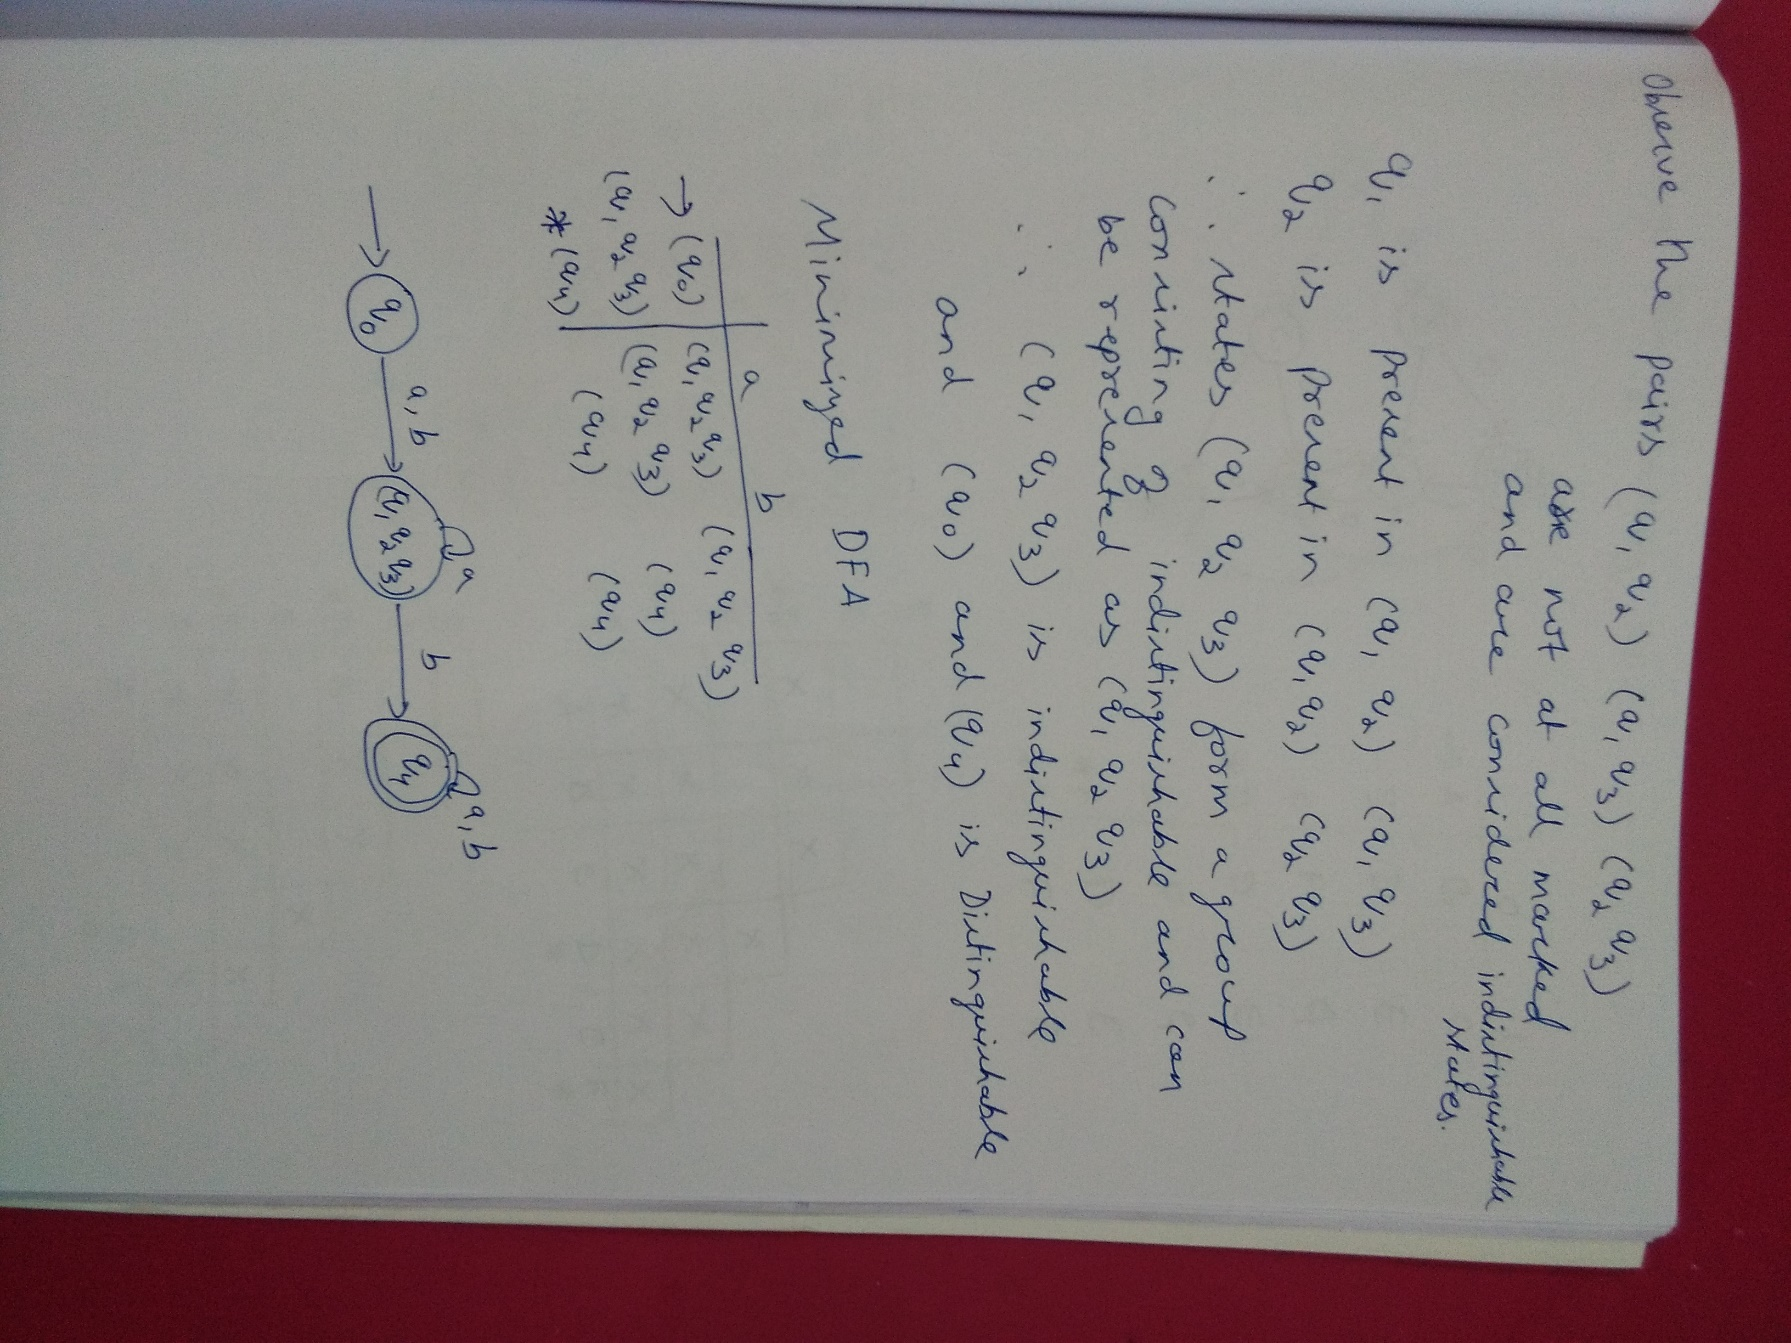 Observe the pairs (q₁ q₂) (q₁ q₃) (q₂ q₃)
are not at all marked
and are considered indistinguishable
states.
q₁ is present in (q₁ q₂) (q₁ q₃)
q₂ is present in (q₁ q₂) (q₂ q₃)
∴ states (q₁ q₂ q₃) form a group
consisting of indistinguishable and can
be represented as (q₁ q₂ q₃)
∴ (q₁ q₂ q₃) is indistinguishable
and (q₀) and (q₄) is Distinguishable
Minimized DFA
a b
→ (q₀) (q₁ q₂ q₃) (q₁ q₂ q₃)
(q₁ q₂ q₃) (q₁ q₂ q₃) (q₄)
* (q₄) (q₄) (q₄)
a a, b
q₀ a, b (q₁ q₂ q₃) b q₄